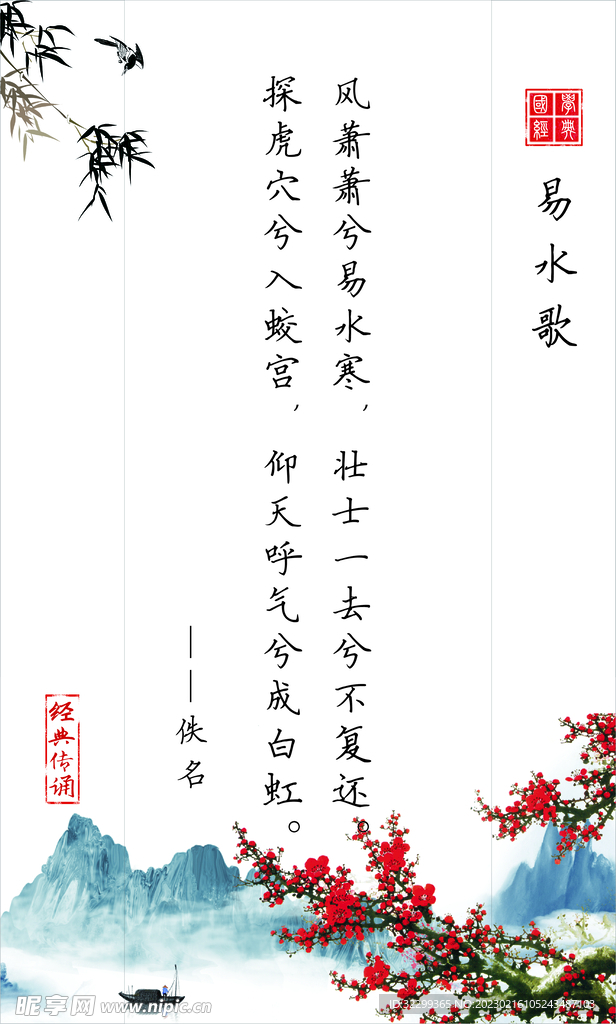 國學經典
易水歌
风萧萧兮易水寒，壮士一去兮不复还。
探虎穴兮入蛟宫，仰天呼气兮成白虹。
——佚名
经典传诵
昵享网 www.nipic.cn
ID:32299365 NO:20230216105243487103